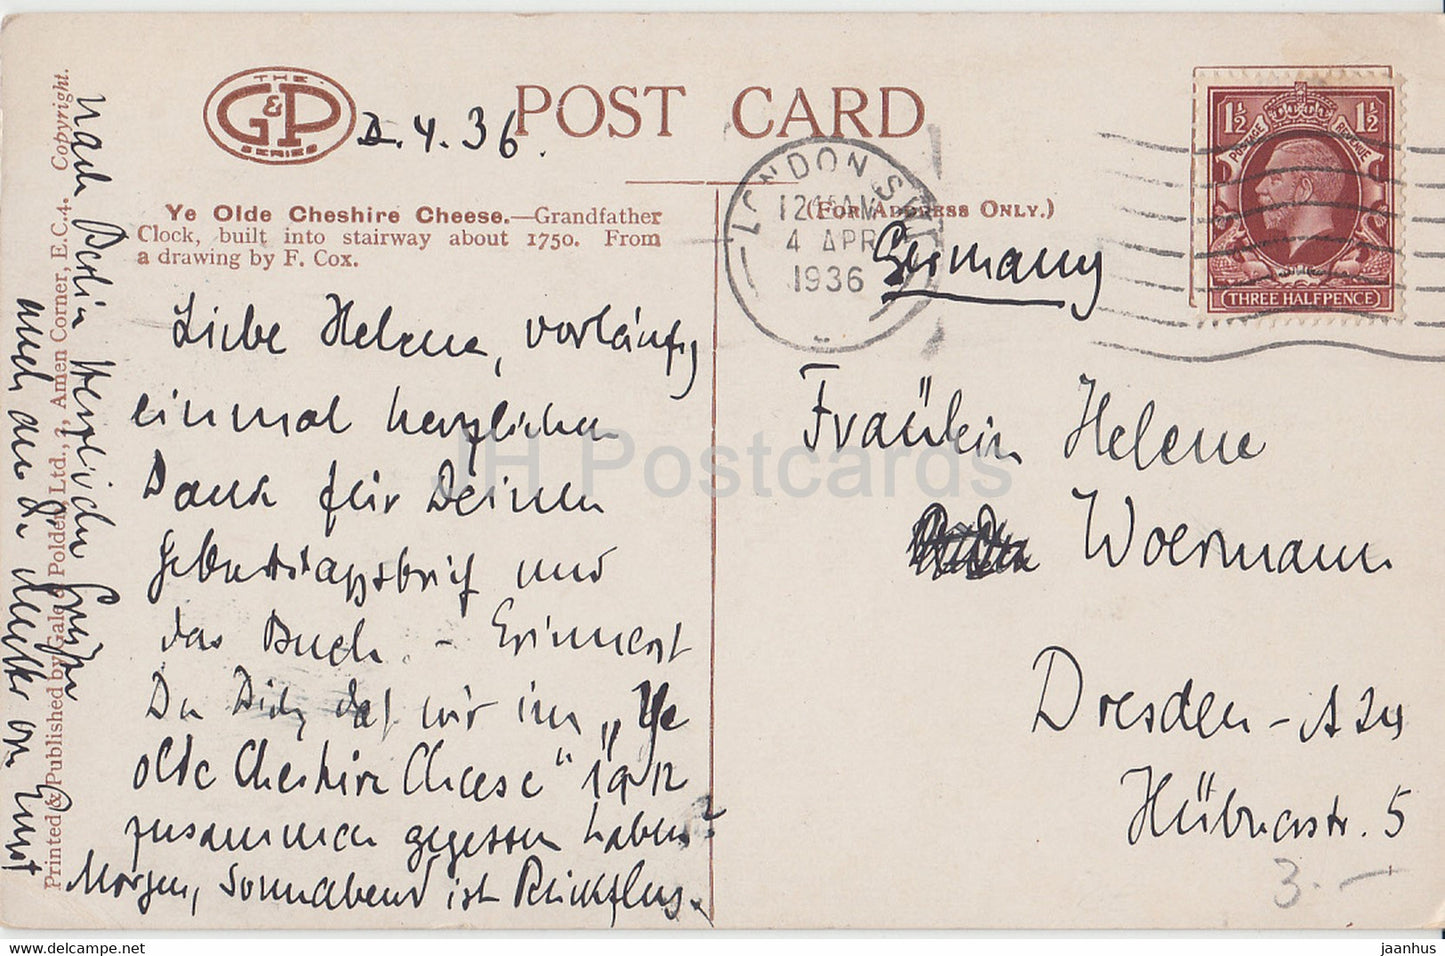 THE
G&P
SERIES
POST CARD
2.4.36.
Ye Olde Cheshire Cheese.—Grandfather
Clock, built into stairway about 1750. From
a drawing by F. Cox.
(FOR ADDRESS ONLY.)
LONDON S.W.1
12 15 AM
4 APR
1936
1½ 1½
POSTAGE REVENUE
THREE HALFPENCE
Germany
Liebe Helene, vorläufig
einmal herzlichen
Dank für Deinen
Geburtstagsbrief und
das Buch - Erinnerst
Du Dich, daß wir im „Ye
olde Cheshire Cheese" 1912
zusammen gegessen haben?
Morgen, Sonnabend ist Rückflug.
nach Berlin Herzliche Grüße
auch an die Mutter von Ernst
Fräulein Helene
Woermann
Dresden-A 24
Hübnerstr. 5
3.-
Printed & Published by Gale & Polden Ltd., 2, Amen Corner, E.C.4. Copyright.
JH Postcards
jaanhus